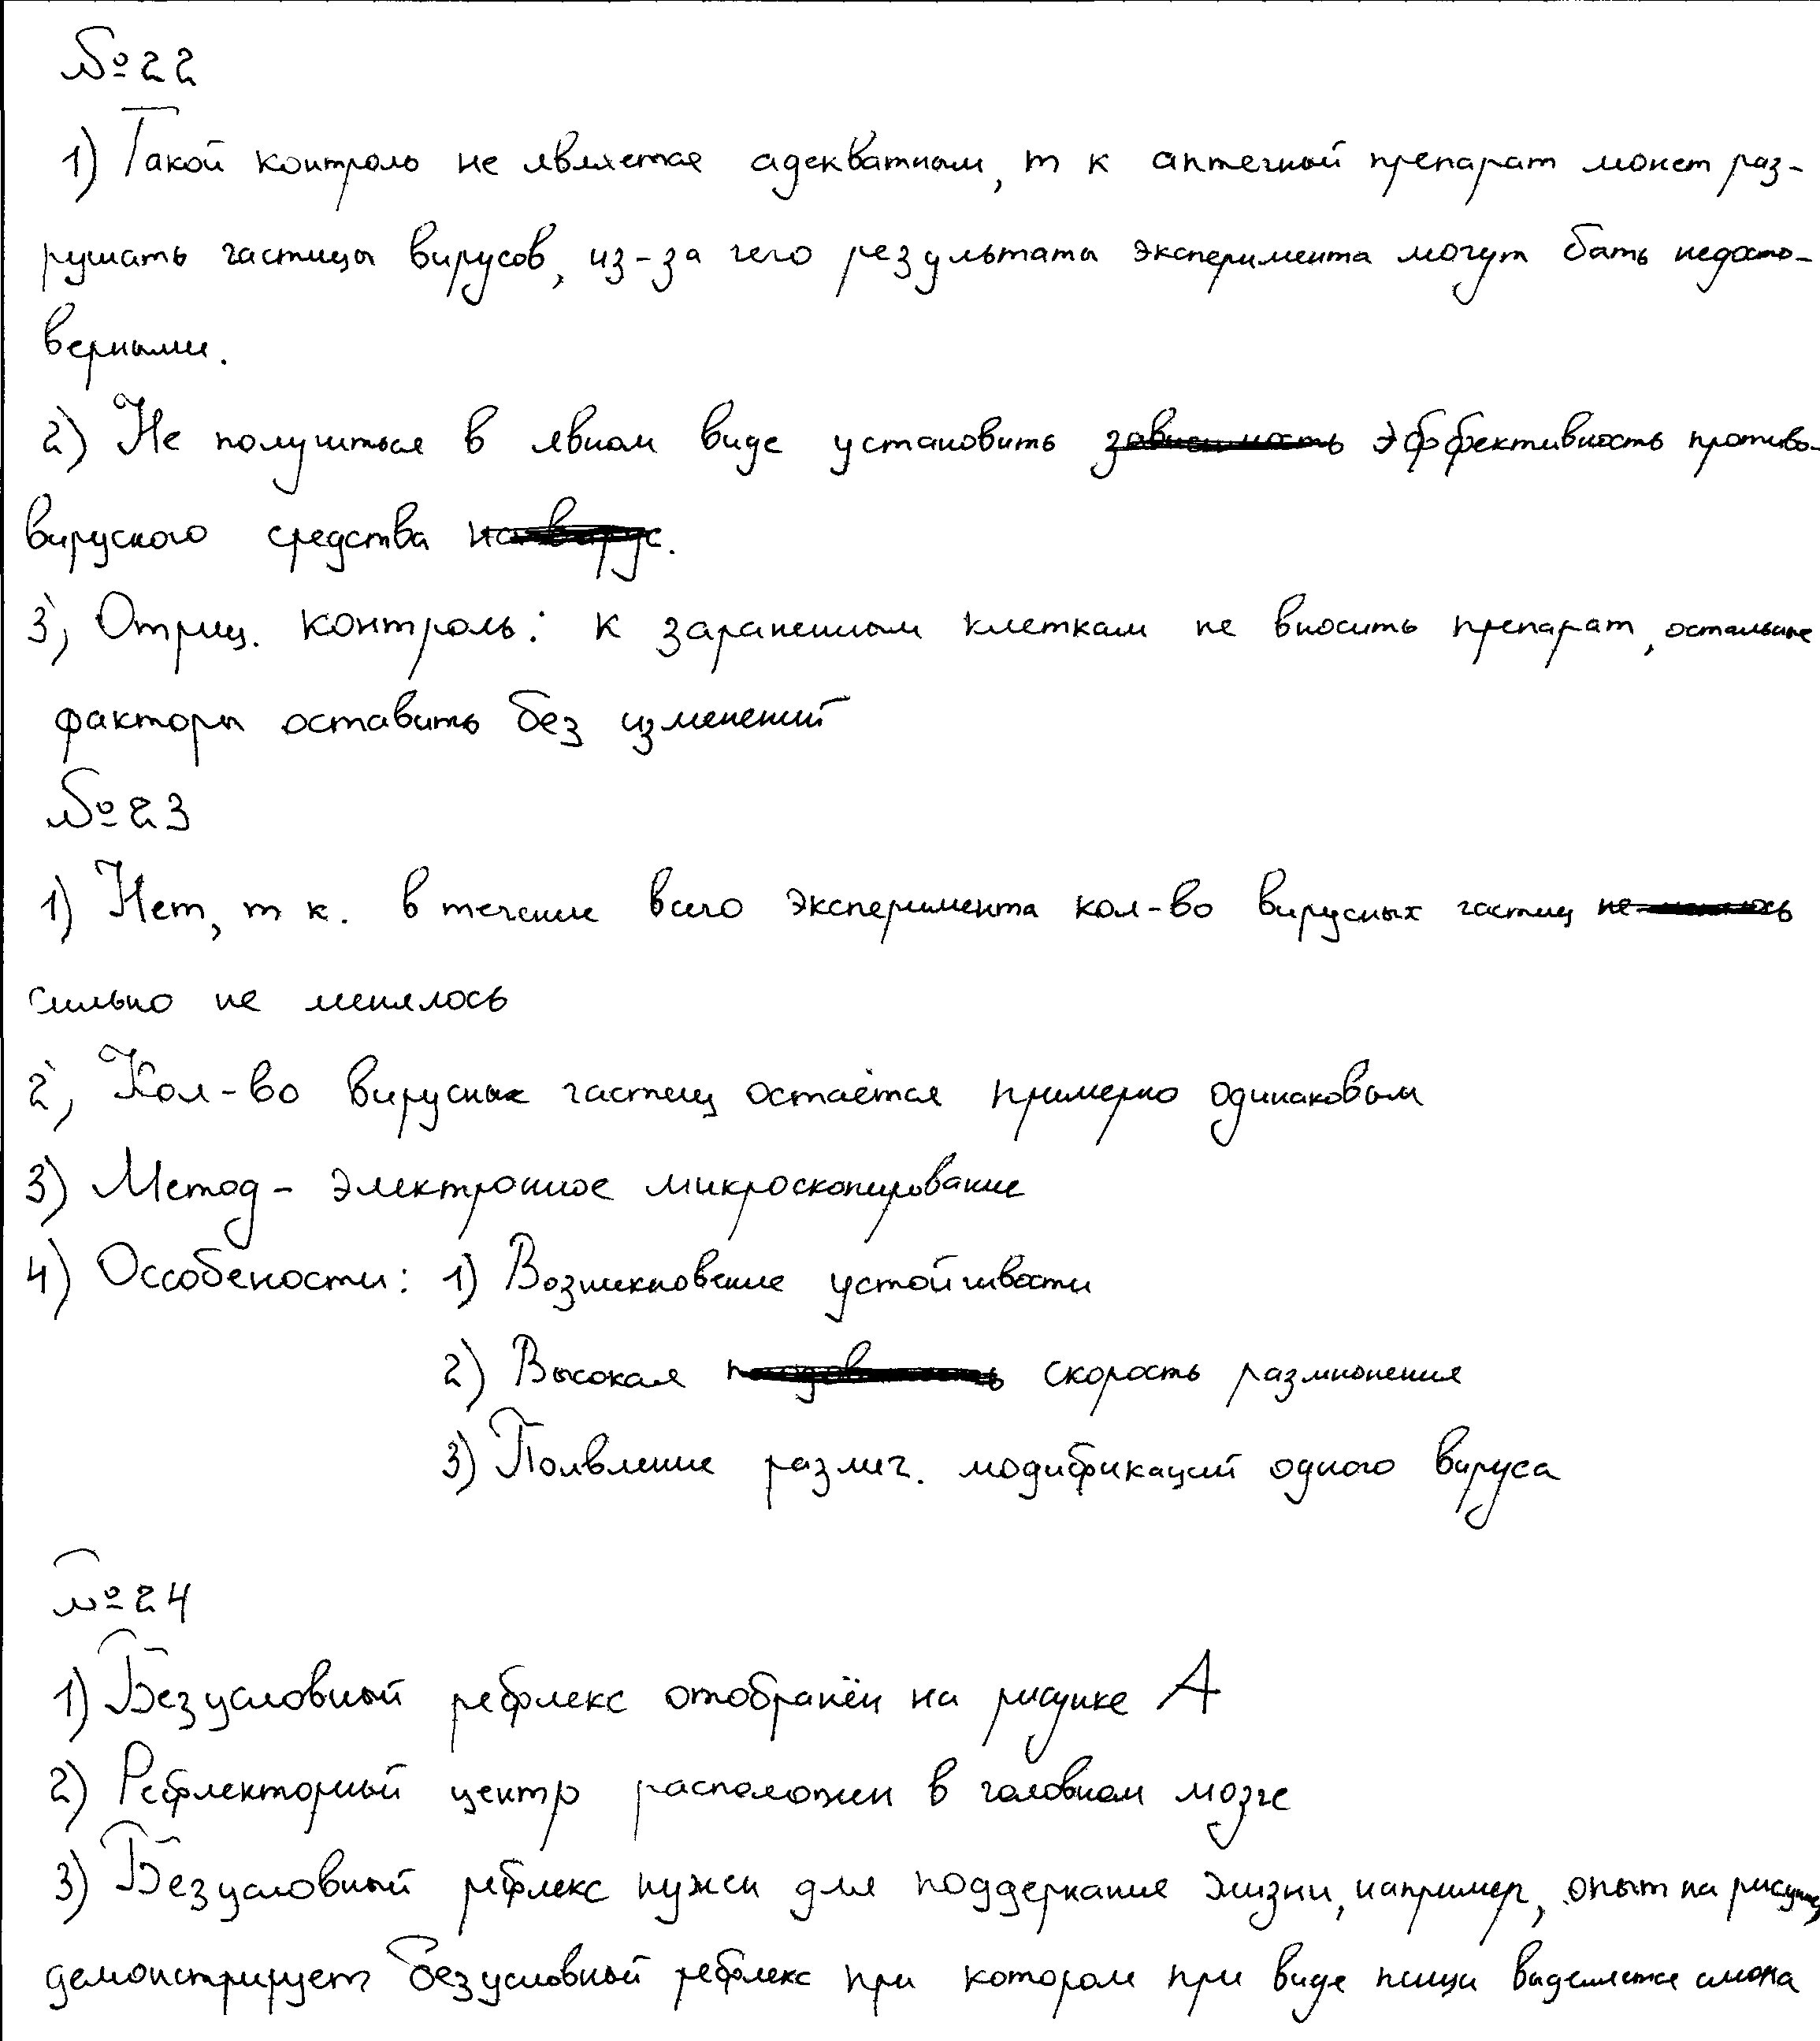 №22
1) Такой контроль не является адекватным, т к аптечный препарат может раз-
рушать частицы вирусов, из-за чего результаты эксперимента могут бать недосто-
верными.
2) Не получиться в явном виде установить зависимость эффективность противо-
вируского средства на вирус.
3) Отриц. контроль: к зараженным клеткам не вносить препарат, остальные
факторы оставить без изменений
№23
1) Нет, т к. в течение всего эксперимента кол-во вирусных частиц не менялось
сильно не менялось
2) Кол-во вирусных частиц остаётся примерно одинаковым
3) Метод - электронное микроскопирование
4) Оссобености: 1) Возникновение устойчивости
2) Высокая скорость размножения
3) Появление различ. модификаций одного вируса
№24
1) Безусловный рефлекс отображён на рисунке А
2) Рефлекторный центр расположен в головном мозге
3) Безусловный рефлекс нужен для поддержание жизни, например, опыт на рисунке
демонстрирует безусловный рефлекс при котором при виде пищи выделяется слюна